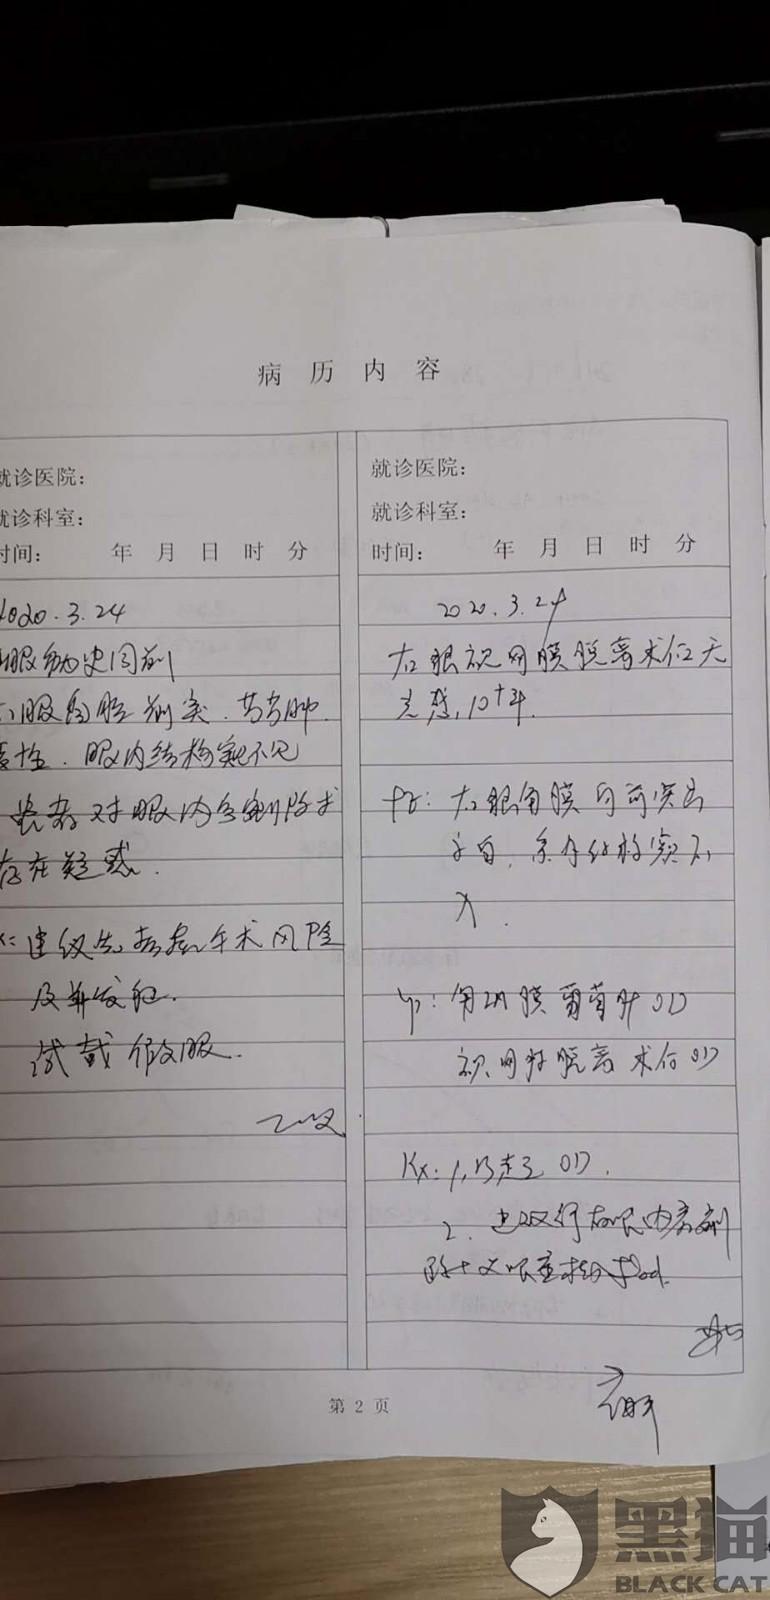 病 历 内 容
就诊医院:
就诊科室:
时间: 年 月 日 时 分
2020.3.24
眼内结构窥不见
患者对眼内容剜除术
存在疑惑.
建议先考虑手术风险
及并发症.
试戴 眼.
就诊医院:
就诊科室:
时间: 年 月 日 时 分
2020.3.24
右眼视网膜脱离术后无
光感,10+年.
右眼角膜向前突出
余 结构窥不
入.
角巩膜葡萄肿 OD
视网膜脱离术后 OD
Rx: 1, OD.
2. 建议行右眼内容剜
除+义眼 植入术od.
第 2 页
黑猫
BLACK CAT